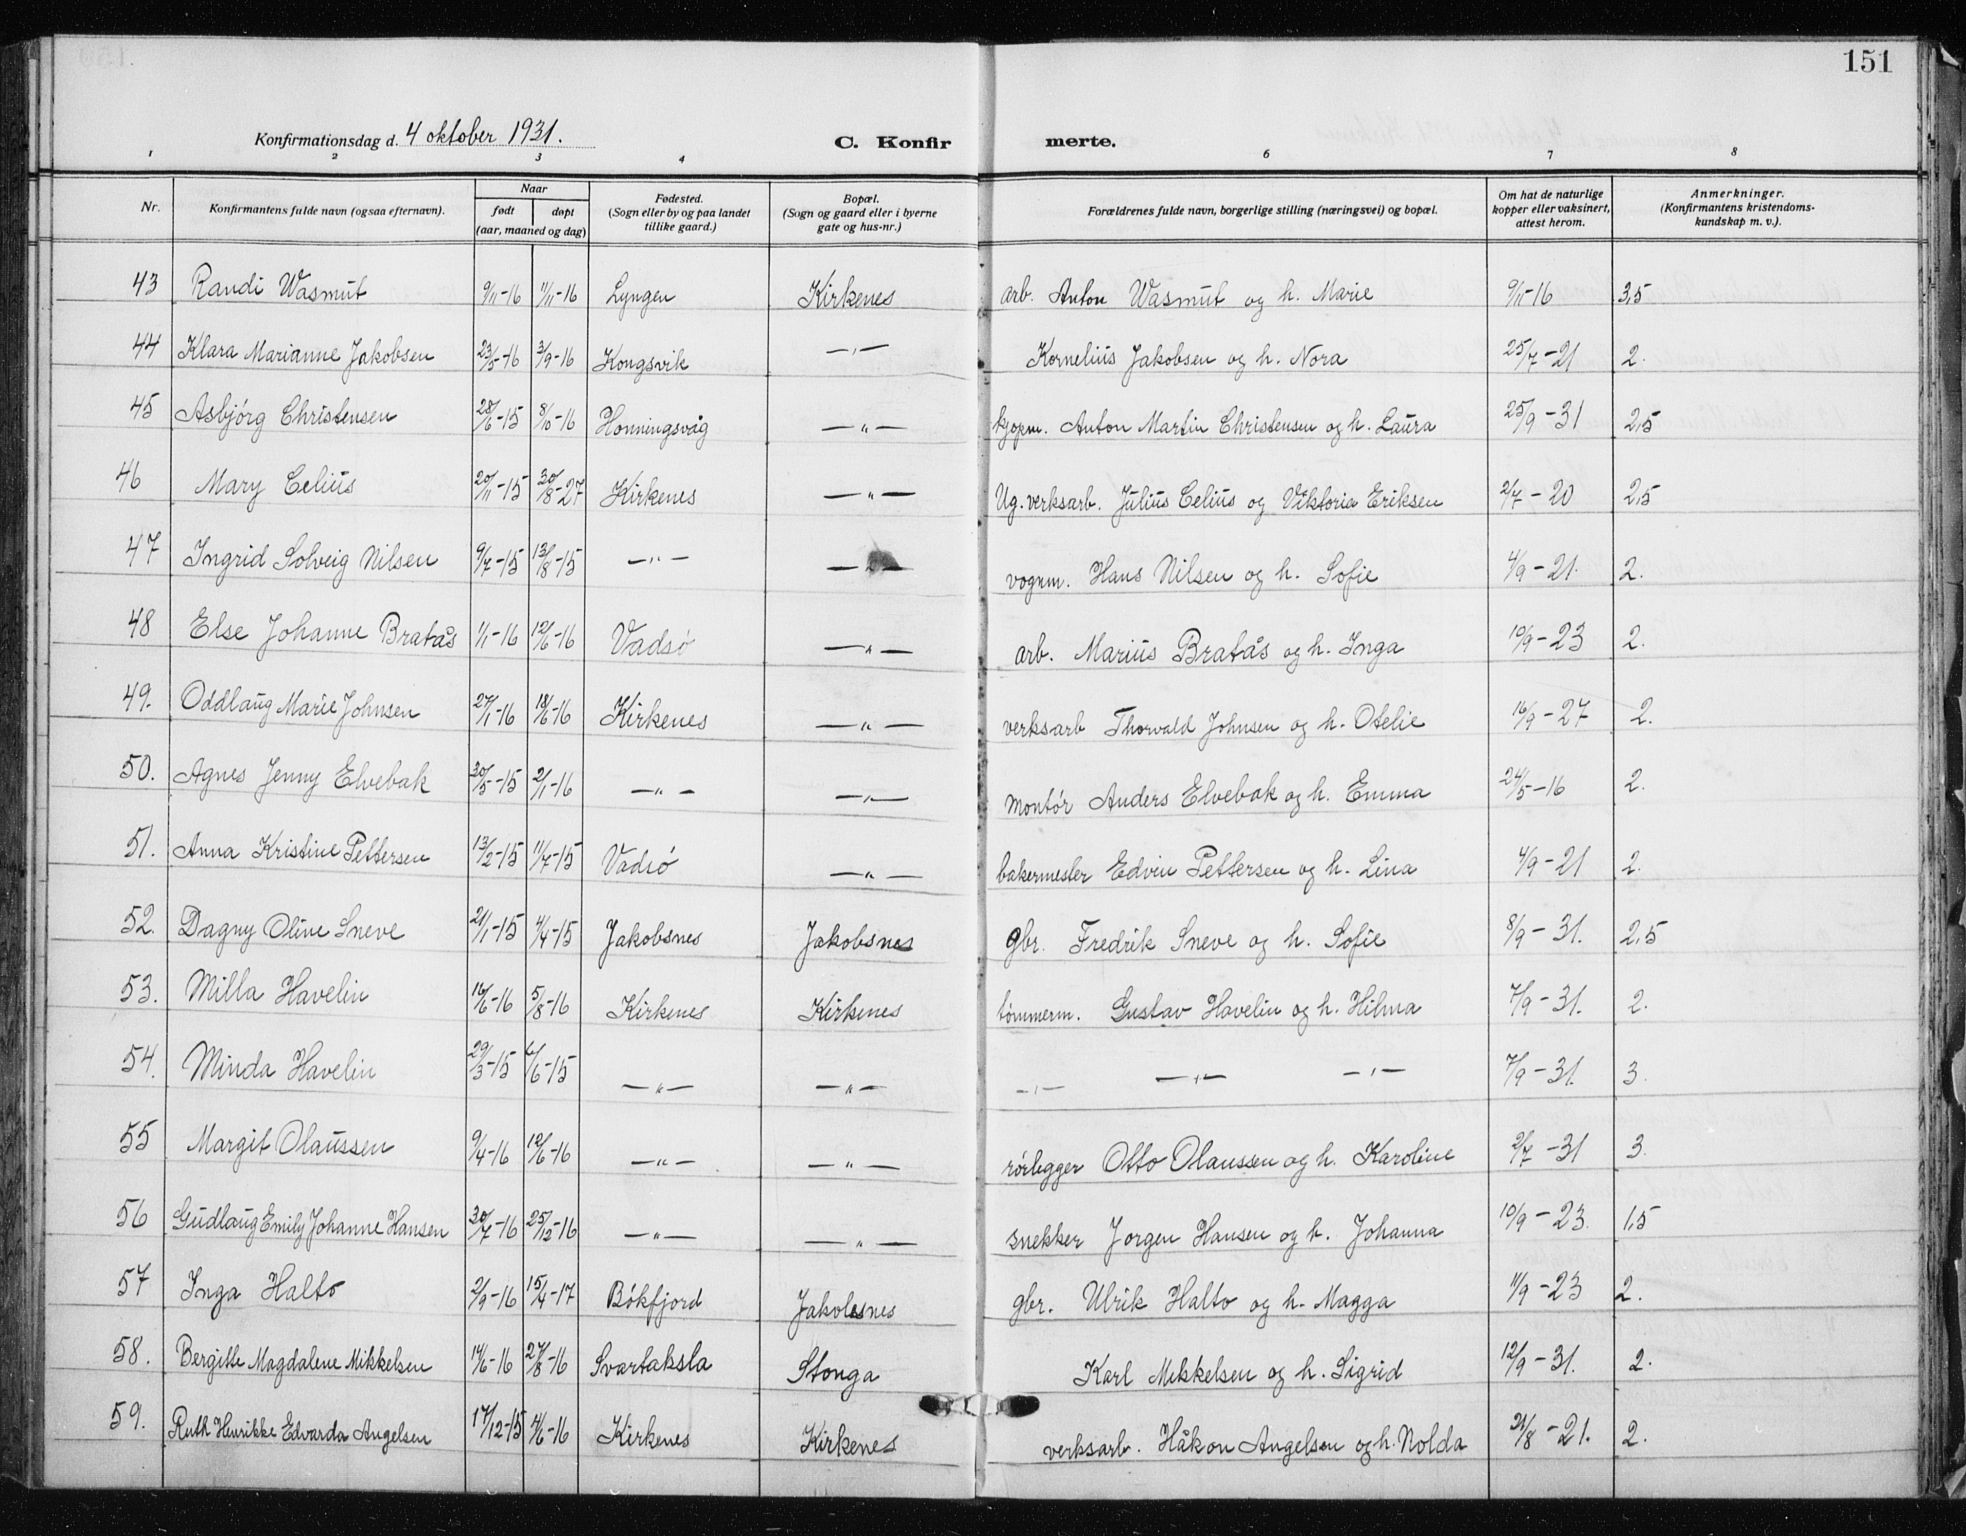 151
Konfirmationsdag d. 4 oktober 1931. C. Konfir merte.
1 2 3 4 6 7 8
Nr. Konfirmantens fulde navn (ogsaa efternavn). Naar født døpt (aar, maaned og dag) Fødested. (Sogn eller by og paa landet tillike gaard.) Bopæl. (Sogn og gaard eller i byerne gate og hus-nr.) Forældrenes fulde navn, borgerlige stilling (næringsvei) og bopæl. Om hat de naturlige kopper eller vaksinert, attest herom. Anmerkninger. (Konfirmantens kristendoms-kundskap m. v.).
43 Randi Wasmut 9/11-16 11/11-16 Lyngen Kirkenes arb. Anton Wasmut og h. Marie 9/11-16 3,5
44 Klara Marianne Jakobsen 23/5-16 3/9-16 Kongsvik —"— Kornelius Jakobsen og h. Nora 25/7-21 2.
45 Asbjórg Christensen 28/6-15 8/10-16 Honningsvåg —"— kjøpm. Anton Martin Christensen og h. Laura 25/9-31 2,5
46 Mary Celius 20/11-15 30/8-27 Kirkenes —"— Ug. verksarb. Julius Celius og Viktoria Eriksen 2/7-20 2,5
47 Ingrid Solveig Nilsen 9/7-15 13/8-15 —"— —"— vognm. Hans Nilsen og h. Sofie 4/9-21. 2.
48 Else Johanne Bratås 1/1-16 12/6-16 Vadsó —"— arb. Marius Bratås og h. Inga 10/9-23 2.
49. Oddlaug Marie Johnsen 27/1-16 18/6-16 Kirkenes —"— verksarb Thorvald Johnsen og h. Otelie 16/9-27 2.
50. Agnes Jenny Elvebak 30/5-15 2/1-16 —"— —"— montór Anders Elvebak og h. Emma 24/5-16 2.
51. Anna Kristine Pettersen 13/2-15 11/7-15 Vadsó —"— bakermester Edvin Pettersen og h. Lina 4/9-21 2.
52. Dagny Oline Sneve 21/1-15 4/4-15 Jakobsnes Jakobsnes gbr. Fredrik Sneve og h. Sofie 8/9-31. 2,5
53. Milla Havelin 16/6-16 5/8-16 Kirkenes Kirkenes tómmerm. Gustav Havelin og h. Hilma 7/9-31. 2.
54. Minda Havelin 29/3-15 6/6-15 —"— —"— —"— —"— —"— 7/9-31. 3.
55 Margit Olaussen 9/4-16 12/6-16 —"— —"— rórlegger Otto Olaussen og h. Karoline 2/7-31 3.
56 Gudlaug Emily Johanne Hansen 30/7-16 25/12-16 —"— —"— snekker Jorgen Hansen og h. Johanna 10/9-23. 1,5
57 Inga Halto 2/9-16 15/4-17 Bókfjord Jakobsnes gbr. Ulrik Halto og h. Magga 11/9-23 2.
58. Bergitte Magdalene Mikkelsen 14/6-16 27/8-16 Svartaksla Stonga Karl Mikkelsen og h. Sigrid 12/9-31. 2.
59. Ruth Henrikke Edvarda Angelsen 17/12-15 4/6-16 Kirkenes Kirkenes verksarb. Håkon Angelsen og h. Nolda /8-21. 2.